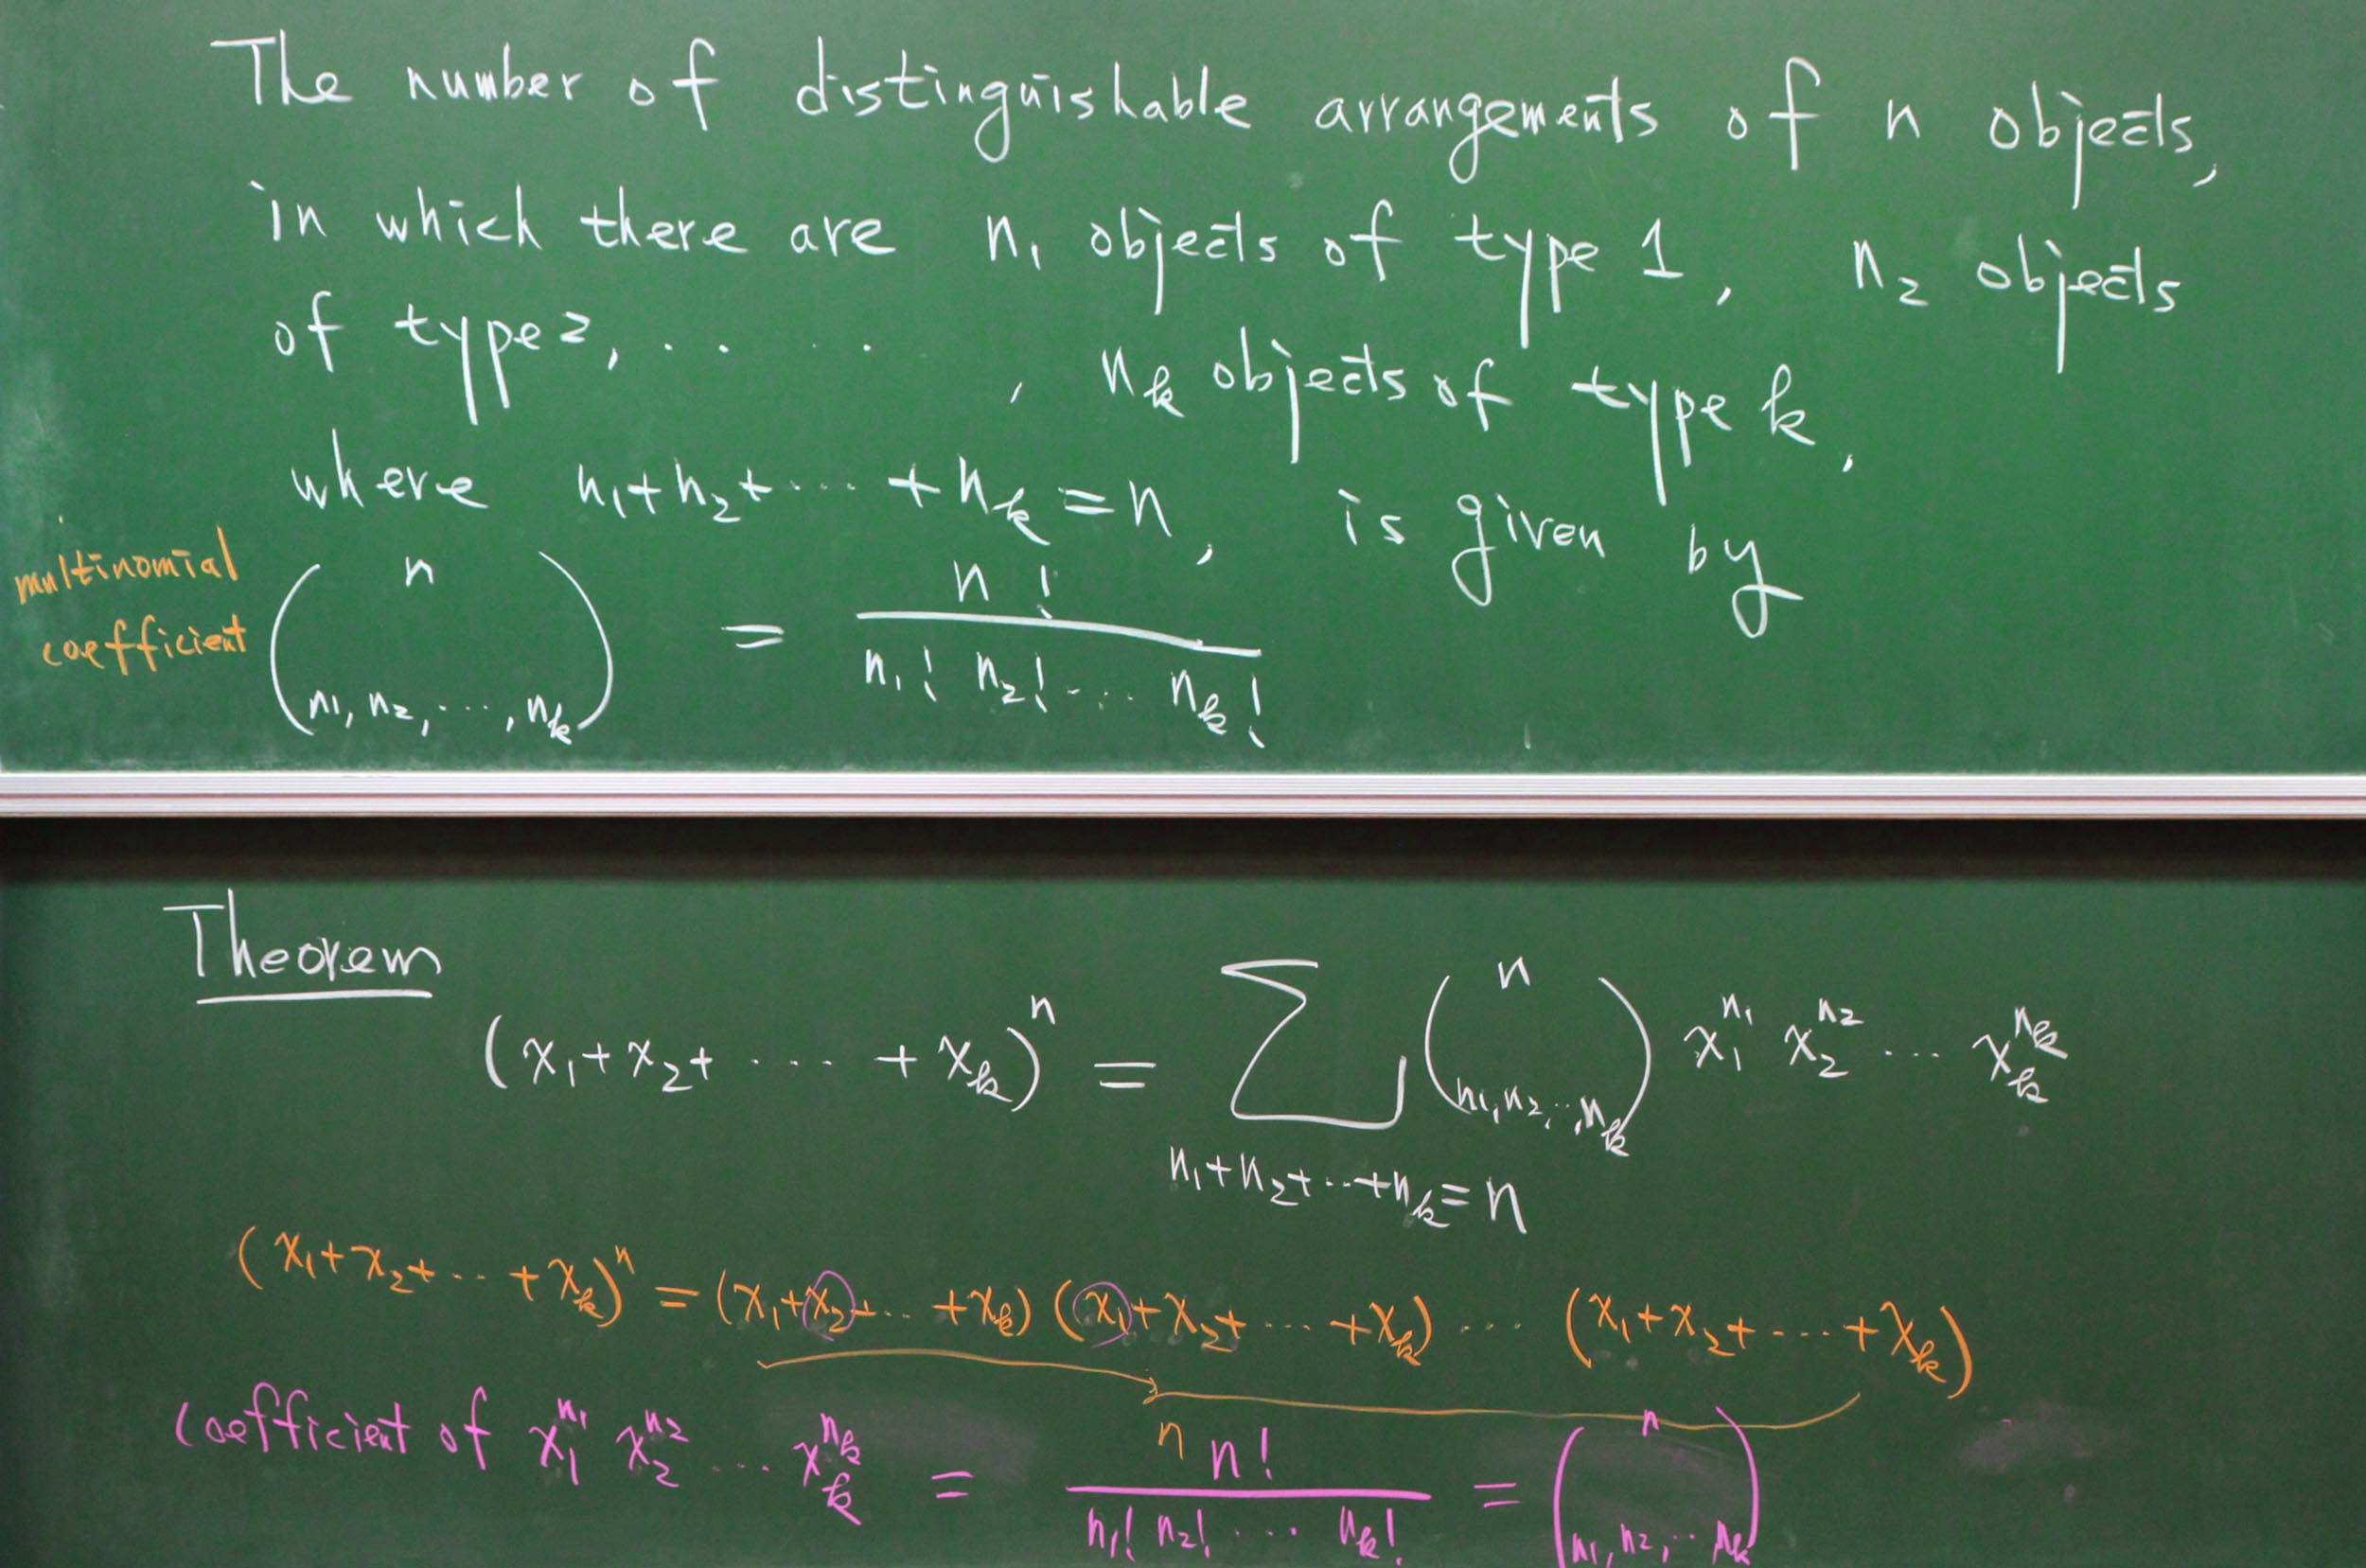 The number of distinguishable arrangements of n objects,
in which there are n₁ objects of type 1, n₂ objects
of type 2, . . . . , nₖ objects of type k,
where n₁+n₂+ ··· +nₖ = n, is given by
multinomial coefficient (n / n₁, n₂, ···, nₖ) = n! / (n₁! n₂! ··· nₖ!)
Theorem
(x₁+x₂+ ···· + xₖ)ⁿ = ∑_{n₁+n₂+···+nₖ=n} (n / n₁,n₂,··,nₖ) x₁^{n₁} x₂^{n₂} ··· xₖ^{nₖ}
(x₁+x₂+ ··· +xₖ)ⁿ = (x₁+x₂+ ··· +xₖ) (x₁+x₂+ ···· +xₖ) ···· (x₁+x₂+ ···· +xₖ)
n
coefficient of x₁^{n₁} x₂^{n₂} ··· xₖ^{nₖ} = n! / (n₁! n₂! ···· nₖ!) = (n / n₁, n₂, ·· nₖ)